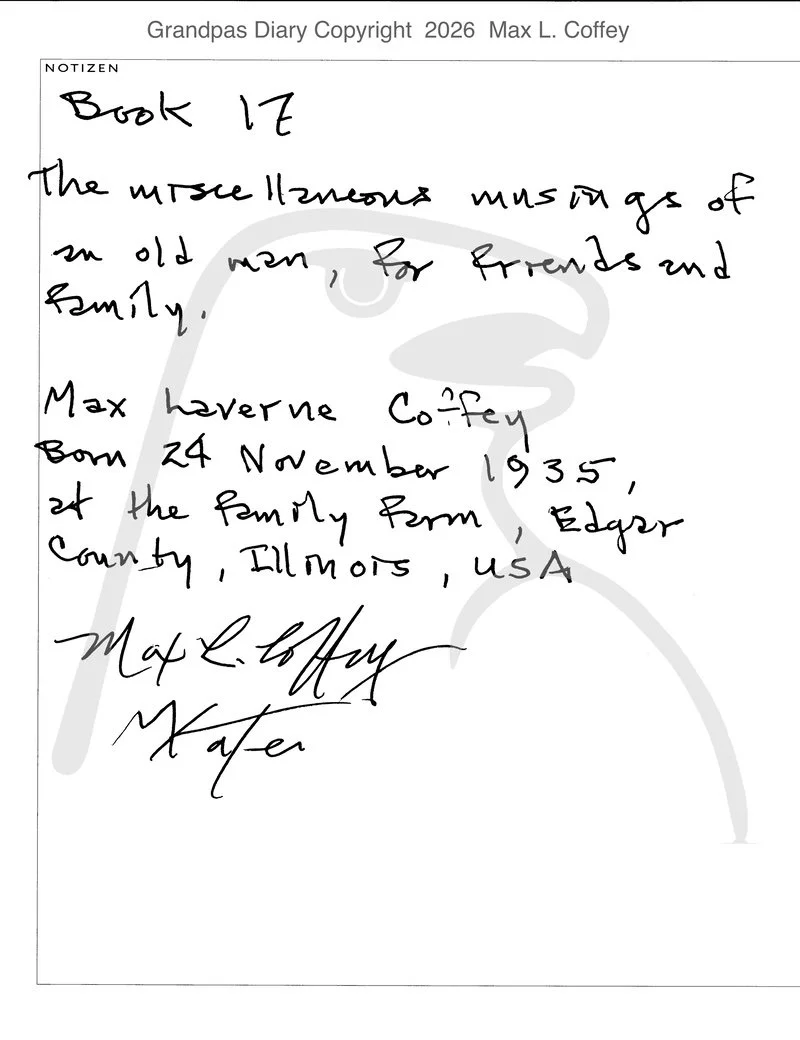 Grandpas Diary Copyright 2026 Max L. Coffey
NOTIZEN
Book 17
The miscellaneous musings of
an old man, for friends and
family.
Max Laverne Coffey
Born 24 November 1935,
at the family farm, Edgar
County, Illinois, USA
Max L. Coffey